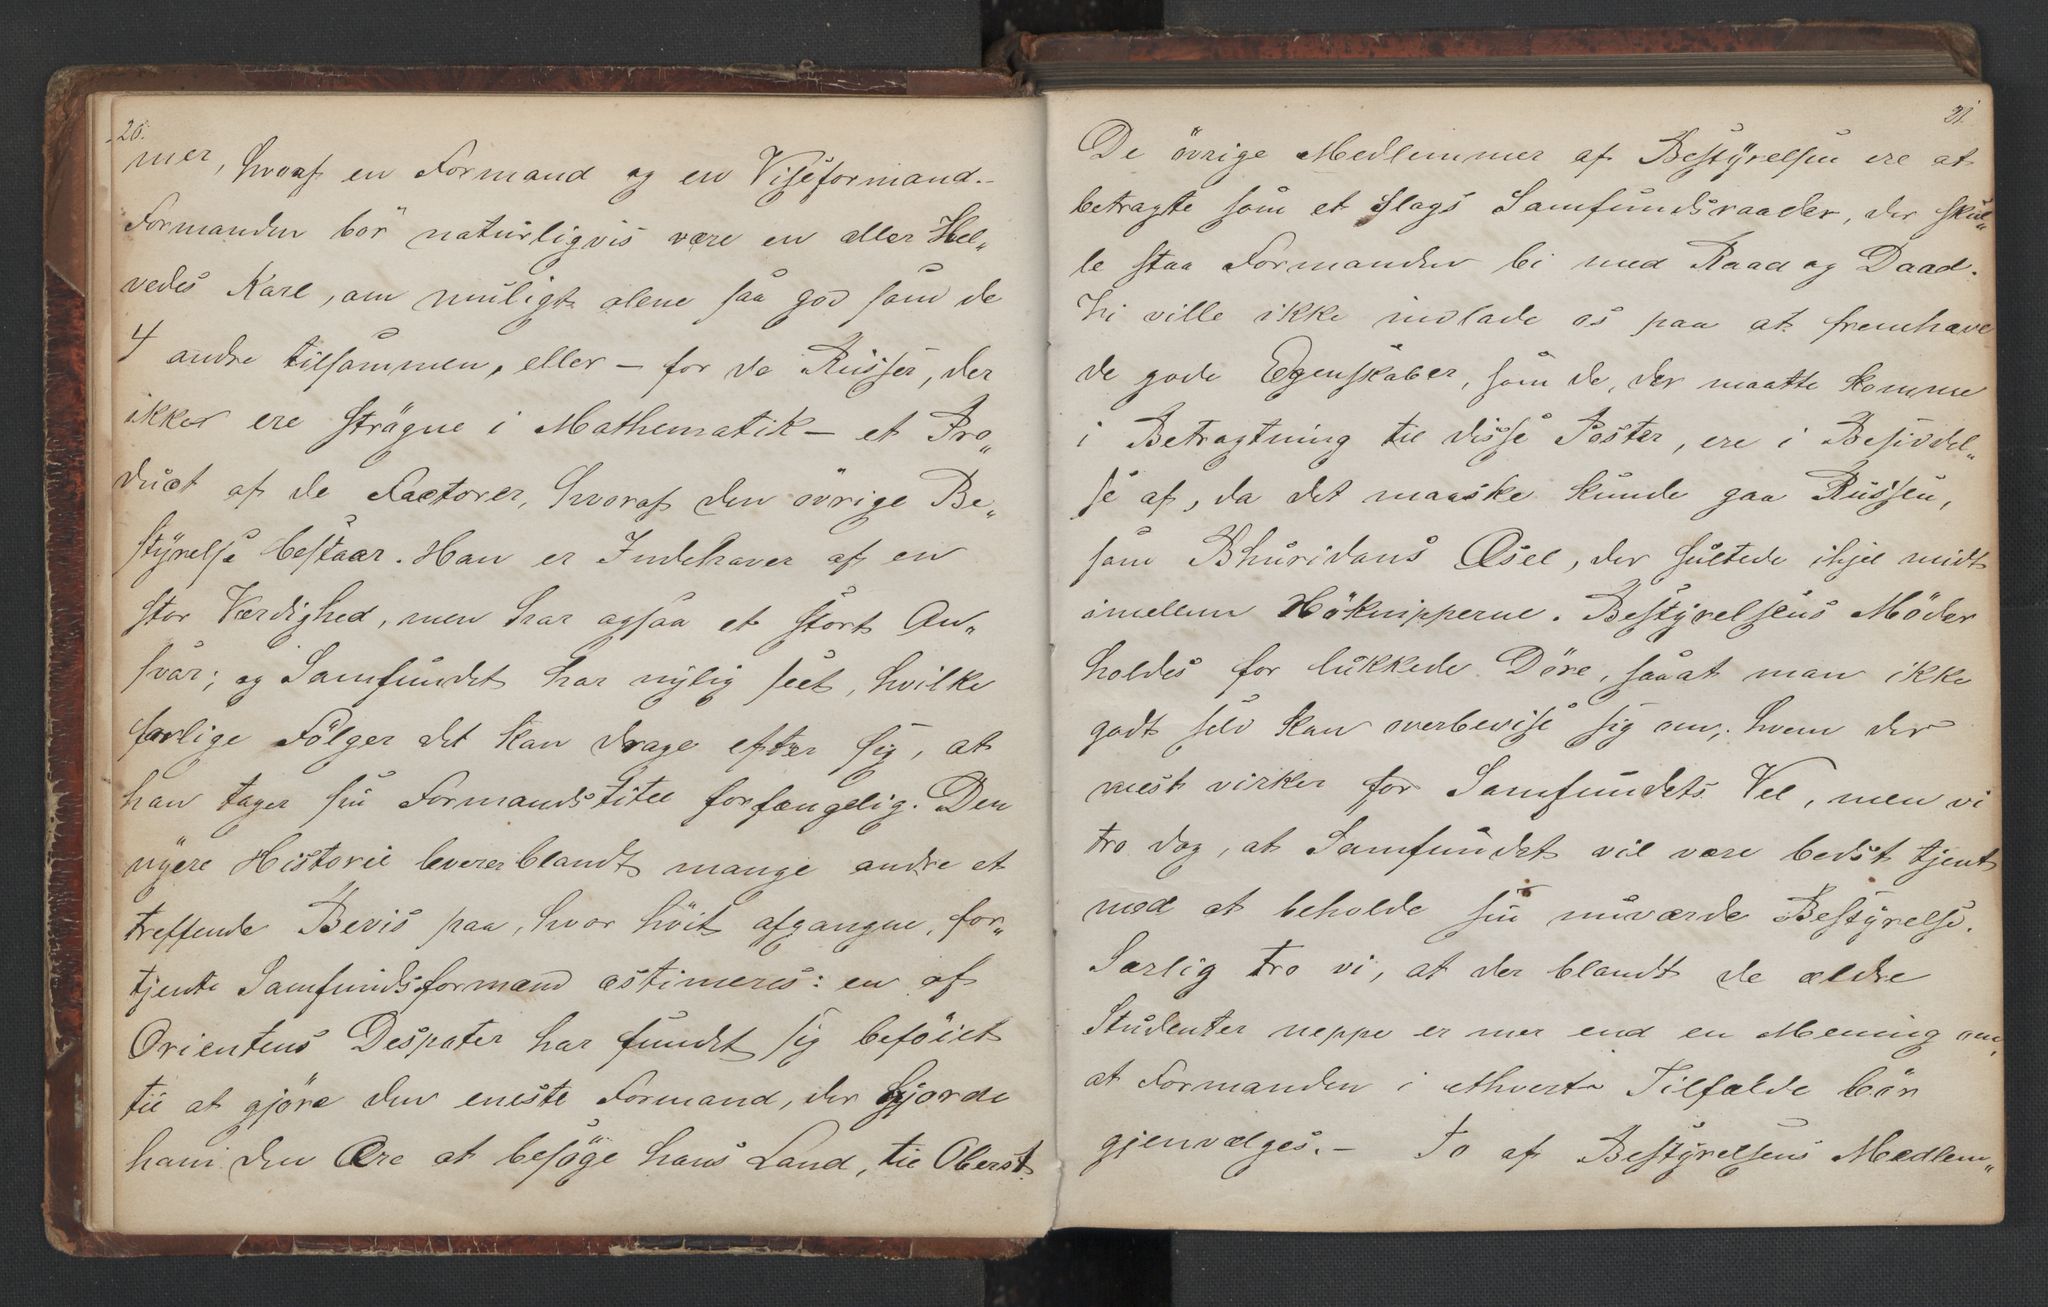 20.
mer, hvoraf en Formand og en Viseformand.-
Formanden bör naturligvis være en aller Hel„
vedes Karl, om muligt alene saa god som de
4 andre tilsammen, eller – for de Russer, der
ikke ere strögne i Mathematik – et Pro„
duct af de Factorer, hvoraf den övrige Be„
styrelse bestaar. Han er Indehaver af en
stor Værdighed, men har ogsaa et stort An„
svar; og Samfundet har nylig seet, hvilke
farlige Fölger det kan drage efter sig, at
han tager sin Formandstitel forfængelig. Den
nyere Historie leverer blandt mange andre et
treffende Bevis paa, hvor höit afgangne, for„
tjente Samfundsformænd æstimeres: en af
Orientens Despoter har fundet sig beföiet
til at gjöre den eneste Formand, der gjorde
ham den Ære at besöge hans Land, til Oberst.
21
De övrige Medlemmer af Bestyrelsen ere at
betragte som et Slags Samfundsraader, der skul„
le staa Formanden bi med Raad og Daad.
Vi ville ikke indlade os paa at fremhæve
de gode Egenskaber, som de, der maatte komme
i Betragtning til disse Poster, ere i Besiddel„
se af, da det maaske kunde gaa Russen,
som Bhuridans Æsel, der sultede ihjel midt
imellem Höknipperne. Bestyrelsens Möder
holdes for lukkede Döre, saaat man ikke
godt selv kan overbevise sig om, hvem der
mest virker for Samfundets Vel, men vi
tro dog, at Samfundet vil være bedst tjent
med at beholde sin nuværde Bestyrelse.
Særlig tro vi, at der blandt de ældre
Studenter neppe er mer end en Mening om,
at Formanden i ethvert Tilfælde bör
gjenvælges. – To af Bestyrelsens Medlem„